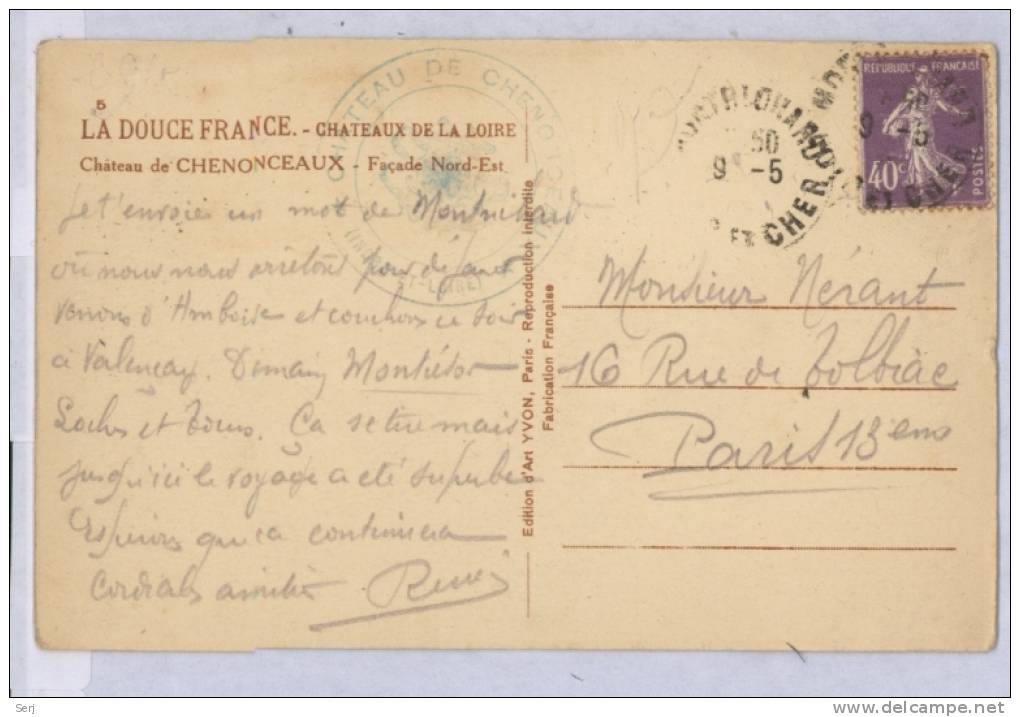 5
LA DOUCE FRANCE. - CHATEAUX DE LA LOIRE
Château de CHENONCEAUX - Façade Nord-Est
CHATEAU DE CHENONCEAUX
(INDRE-ET-LOIRE)
Je t'envoie un mot de Montrichard
où nous nous arrêtons pour déjeuner
venons d'Amboise et couchons ce soir
à Valençay. Demain Montrésor
Loches et Tours. Ça se tire mais
jusqu'ici le voyage a été superbe
Espérons que ça continuera
Cordiales amitiés René
Edition d'Art YVON, Paris - Reproduction interdite
Fabrication Française
MONTRICHARD
50
9 -5
ET CHER
REPUBLIQUE FRANCAISE
40c
POSTES
9 -5
CHER
Monsieur Nérant
16 Rue de Tolbiac
Paris 13 eme
Serj
www.delcampe.net